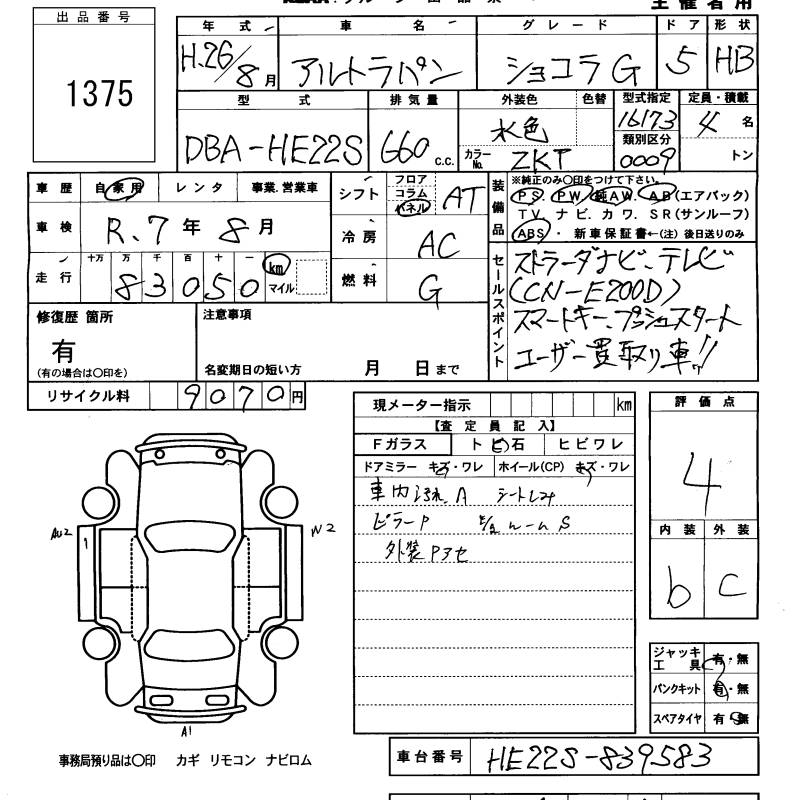 主催者用
出品番号
1375
年式 車名 グレード ドア 形状
H.26/8月 アルトラパン ショコラG 5 HB
型式 排気量 外装色 色替 型式指定 定員・積載
DBA-HE22S 660 c.c. 水色 16173 4名
カラーNo. ZKT 類別区分 0009 トン
車歴 自家用 レンタ 事業.営業車
シフト フロア コラム パネル AT
装備品 ※純正のみ〇印をつけて下さい。
PS. PW. 純AW. AB(エアバック)
TV. ナビ. カワ. SR(サンルーフ)
ABS・新車保証書←(注)後日送りのみ
車検 R.7年8月
冷房 AC
走行 十万 万 千 百 十 一 km マイル
83050
燃料 G
セールスポイント
ストラーダナビ、テレビ
(CN-E200D)
スマートキー、プッシュスタート
ユーザー買取り車!!
修復歴 箇所
有
(有の場合は〇印を)
注意事項
名変期日の短い方 月 日まで
リサイクル料 9070円
現メーター指示 km
【査定員記入】
Fガラス トビ石 ヒビワレ
ドアミラー キズ・ワレ ホイール(CP) キズ・ワレ
車内 汚れ.A シートしみ
ピラーP ルームS
外装Pアセ
評価点
4
内装 外装
b C
AW2
1
W2
A1
ジャッキ工具 有・無
パンクキット 有・無
スペアタイヤ 有・無
事務局預り品は〇印 カギ リモコン ナビロム
車台番号 HE22S-839583